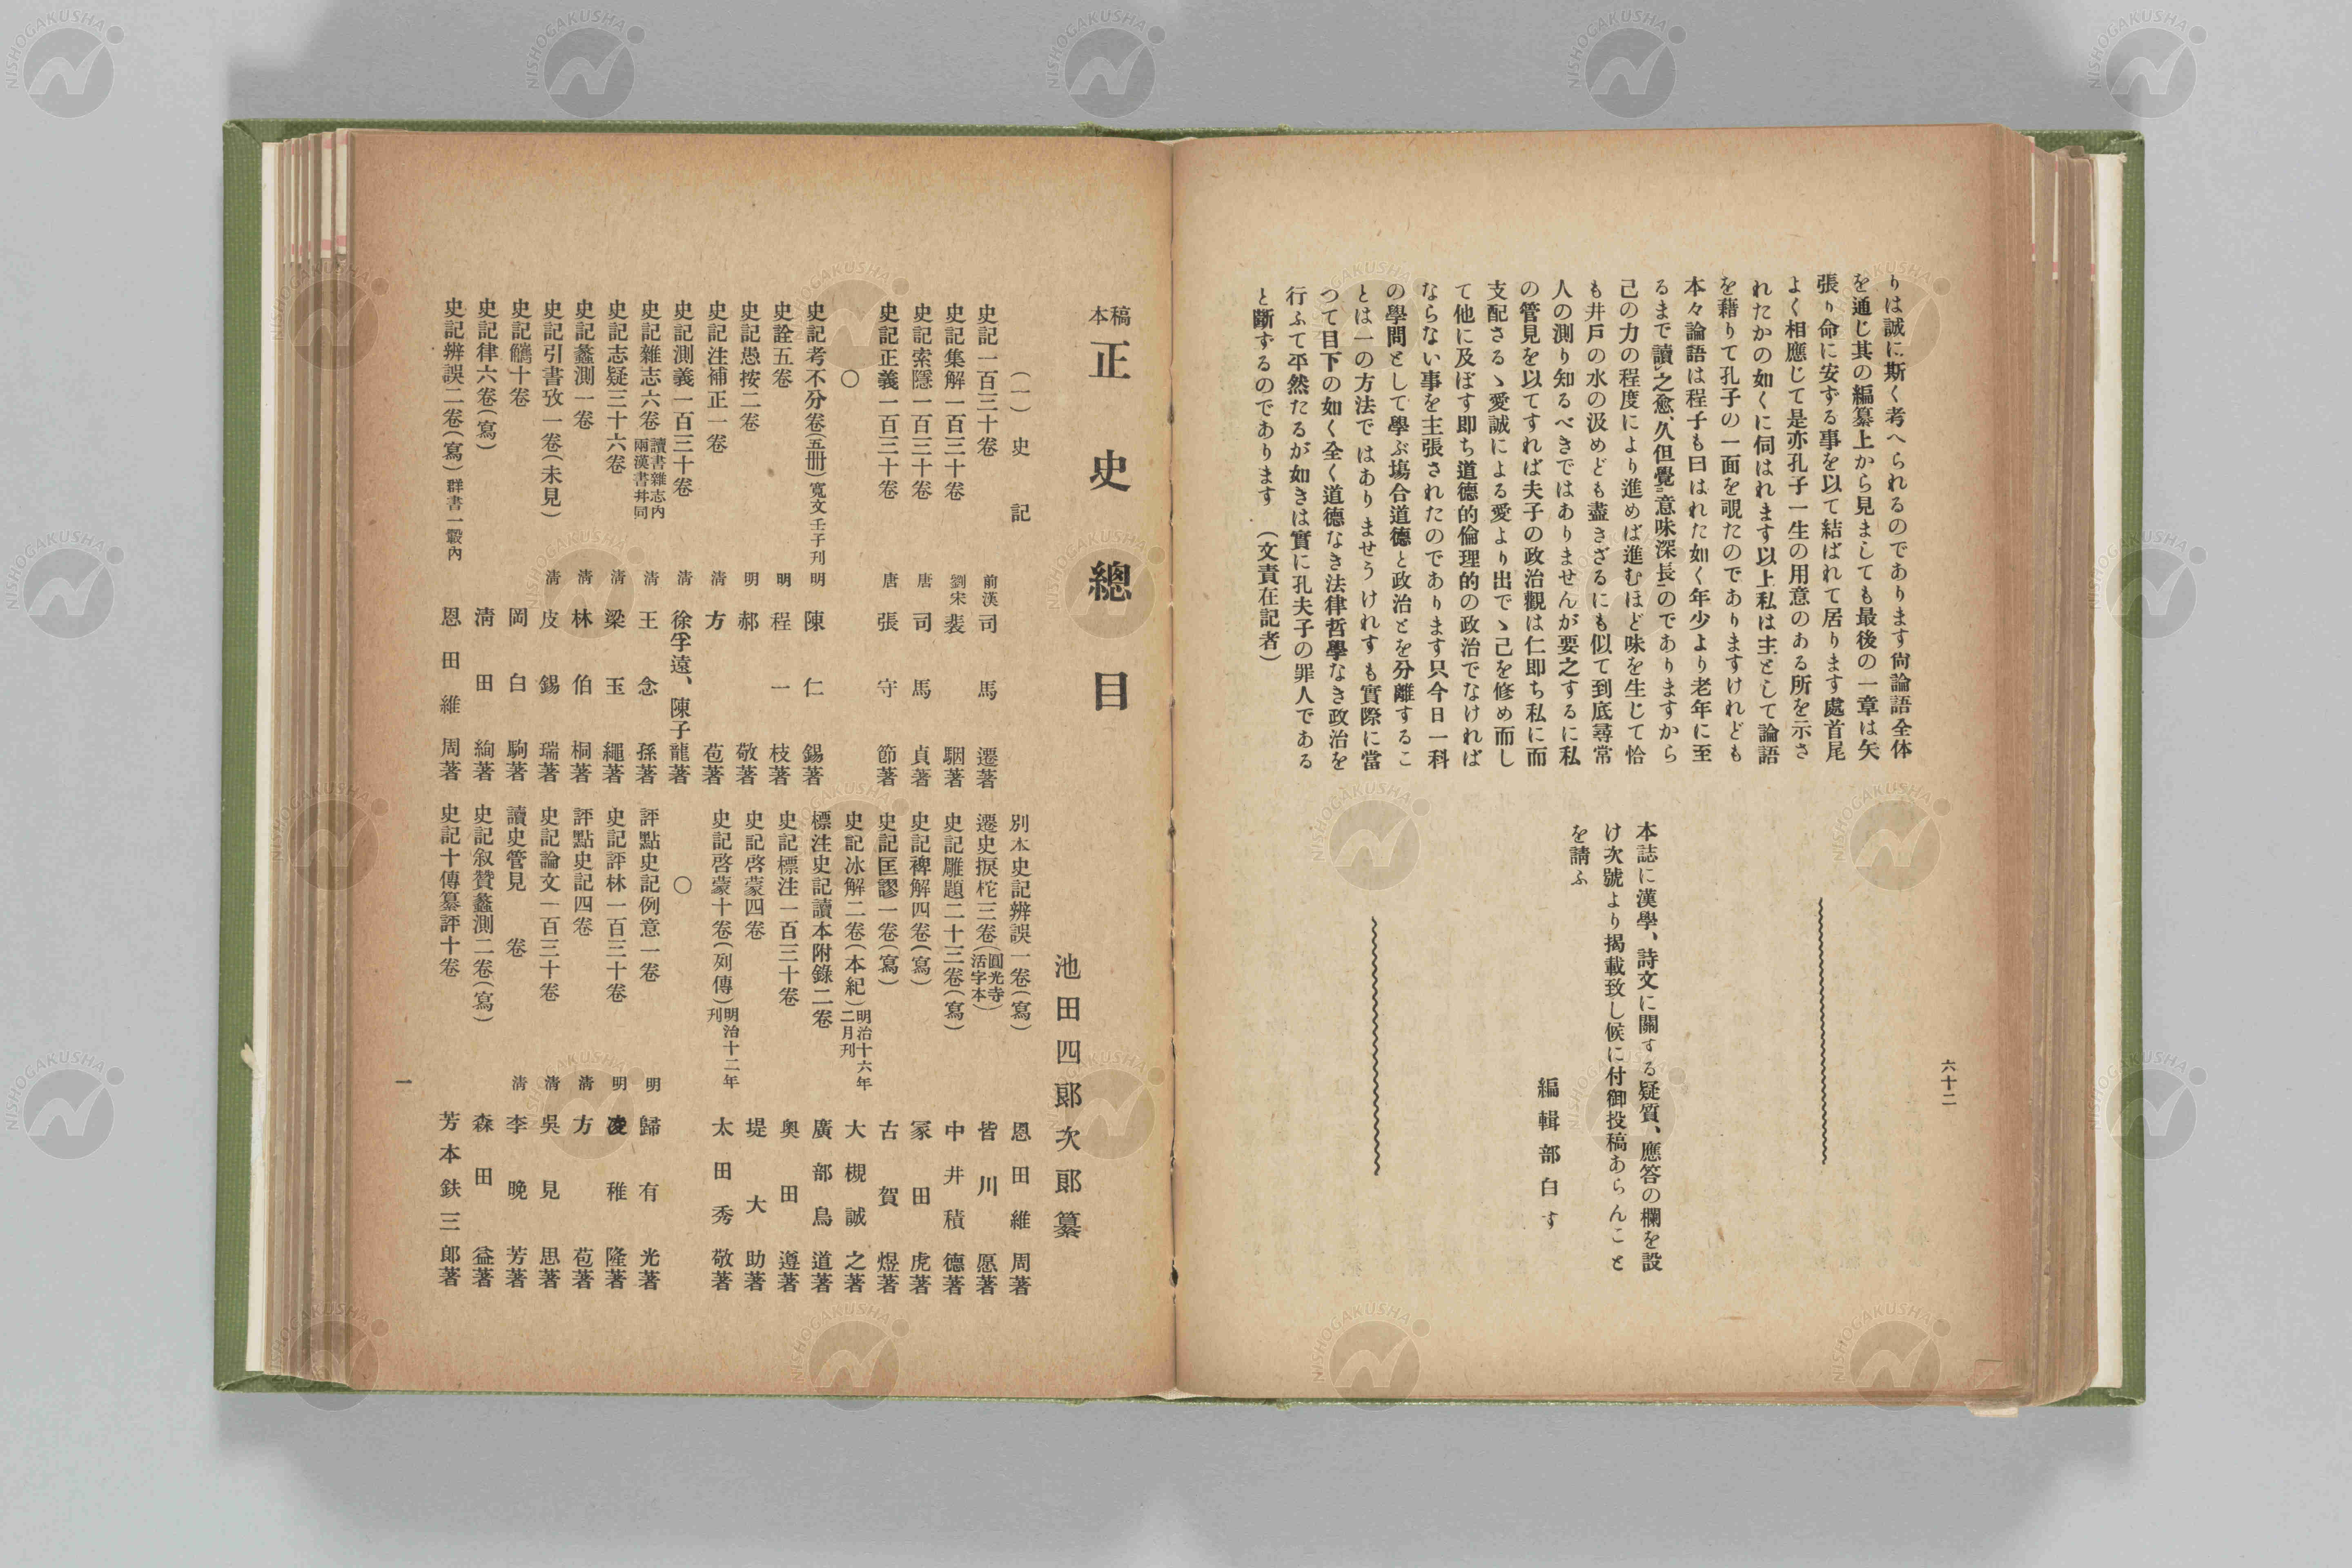 六十二
りは誠に斯く考へられるのであります尙論語全体
を通じ其の編纂上から見ましても最後の一章は矢
張り命に安ずる事を以て結ばれて居ります處首尾
よく相應じて是亦孔子一生の用意のある所を示さ
れたかの如くに伺はれます以上私は主として論語
を藉りて孔子の一面を覗たのでありますけれども
本々論語は程子も曰はれた如く年少より老年に至
るまで讀レ之愈、久但覺二意味深長一のでありますから
己の力の程度により進めば進むほど味を生じて恰
も井戶の水の汲めども盡きざるにも似て到底尋常
人の測り知るべきではありませんが要之するに私
の管見を以てすれば夫子の政治觀は仁卽ち私に而
支配さるゝ愛誠による愛より出でゝ己を修め而し
て他に及ぼす卽ち道德的倫理的の政治でなければ
ならない事を主張されたのであります只今日一科
の學問として學ぶ塲合道德と政治とを分離するこ
とは一の方法ではありませうけれすも實際に當
つて目下の如く全く道德なき法律哲學なき政治を
行ふて平然たるが如きは實に孔夫子の罪人である
と斷ずるのであります (文責在記者)
本誌に漢學、詩文に關する疑質、應答の欄を設
け次號より揭載致し候に付御投稿あらんこと
を請ふ
編輯部白す
稿本 正史總目
池田四郞次郞纂
(一) 史記
史記一百三十卷 前漢 司馬遷著
史記集解一百三十卷 劉宋 裴駰著
史記索隱一百三十卷 唐 司馬貞著
史記正義一百三十卷 唐 張守節著
○
史記考不分卷(五冊)寬文壬子刊 明 陳仁錫著
史詮五卷 明 程一枝著
史記愚按二卷 明 郝敬著
史記注補正一卷 清 方苞著
史記測義一百三十卷 清 徐孚遠、陳子龍著
史記雜志六卷 讀書雜志內兩漢書幷同 清 王念孫著
史記志疑三十六卷 清 梁玉繩著
史記蠡測一卷 清 林伯桐著
史記引書攷一卷(未見) 清 皮錫瑞著
史記觿十卷 岡白駒著
史記律六卷(寫) 淸田絢著
史記辨誤二卷(寫)群書一觳內 恩田維周著
別本史記辨誤一卷(寫) 恩田維周著
遷史捩柁三卷(圓光寺活字本) 皆川愿著
史記雕題二十三卷(寫) 中井積德著
史記裨解四卷(寫) 冢田虎著
史記匡謬一卷(寫) 古賀煜著
史記氷解二卷(本紀)明治十六年二月刊 大槻誠之著
標注史記讀本附錄二卷 廣部鳥道著
史記標注一百三十卷 奧田遵著
史記啓蒙四卷 堤大助著
史記啓蒙十卷(列傳)明治十二年刊 太田秀敬著
○
評點史記例意一卷 明 歸有光著
史記評林一百三十卷 明 凌稚隆著
評點史記四卷 清 方苞著
史記論文一百三十卷 清 吳見思著
讀史管見 卷 清 李晚芳著
史記叙贊蠡測二卷(寫) 森田益著
史記十傳纂評十卷 芳本鉄三郞著
一
NISHOGAKUSHA